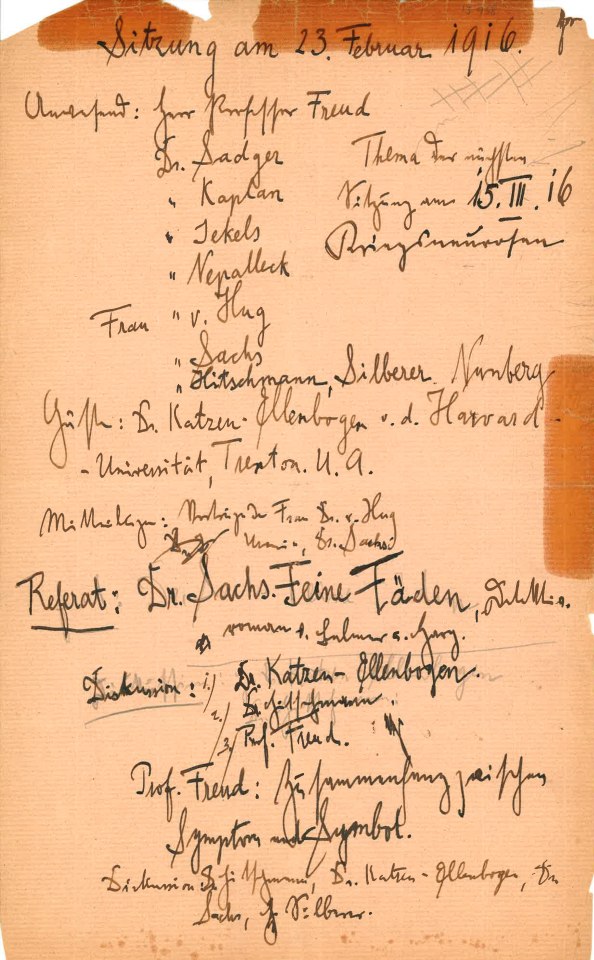 Sitzung am 23. Februar 1916.
Anwesend: Herr Professor Freud
Dr. Sadger
" Kaplan
" Jekels
" Nepalleck
Frau " v. Hug
" Sachs
" Hitschmann, Silberer. Nunberg
Thema der nächsten
Sitzung am 15. III. 16
Kriegsneurosen
Gäste: Dr. Katzen-Ellenbogen v. d. Harvard-
-Universität, Trenton. U. A.
Mitteilungen: Vorträge der Frau Dr. v. Hug
Dr. Sachs
Referat: Dr. Sachs. Feine Fäden,
roman v.
Diskussion: 1.) Dr. Katzen-Ellenbogen.
2.) Dr. Hitschmann.
3.) Prof. Freud.
Prof. Freud: Zusammenhang zwischen
Symptom und Symbol.
Diskussion: Dr. Hitschmann, Dr. Katzen-Ellenbogen, Dr.
Sachs, H. Silberer.